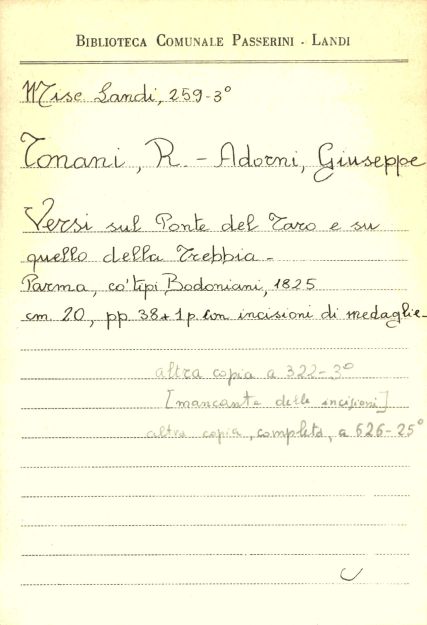 BIBLIOTECA COMUNALE PASSERINI - LANDI
Misc Landi, 259-3°
Tonani, R. - Adorni, Giuseppe
Versi sul Ponte del Taro e su
quello della Trebbia -
Parma, co' tipi Bodoniani, 1825
cm. 20, pp. 38+1p. con incisioni di medaglie -
altra copia a 322-3°
[mancante delle incisioni]
altra copia, completa, a 626-25°